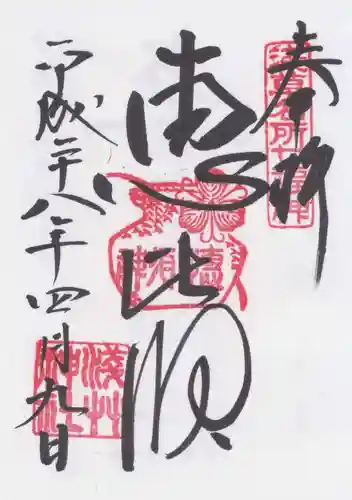 奉拝
浅草名所七福神
恵比須
恵比須
平成二十八年四月九日
浅草神社